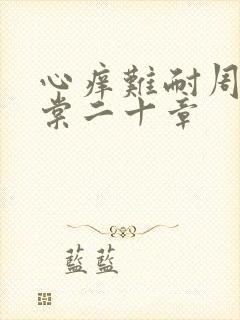 心痒難耐周
棠二十章
藍藍